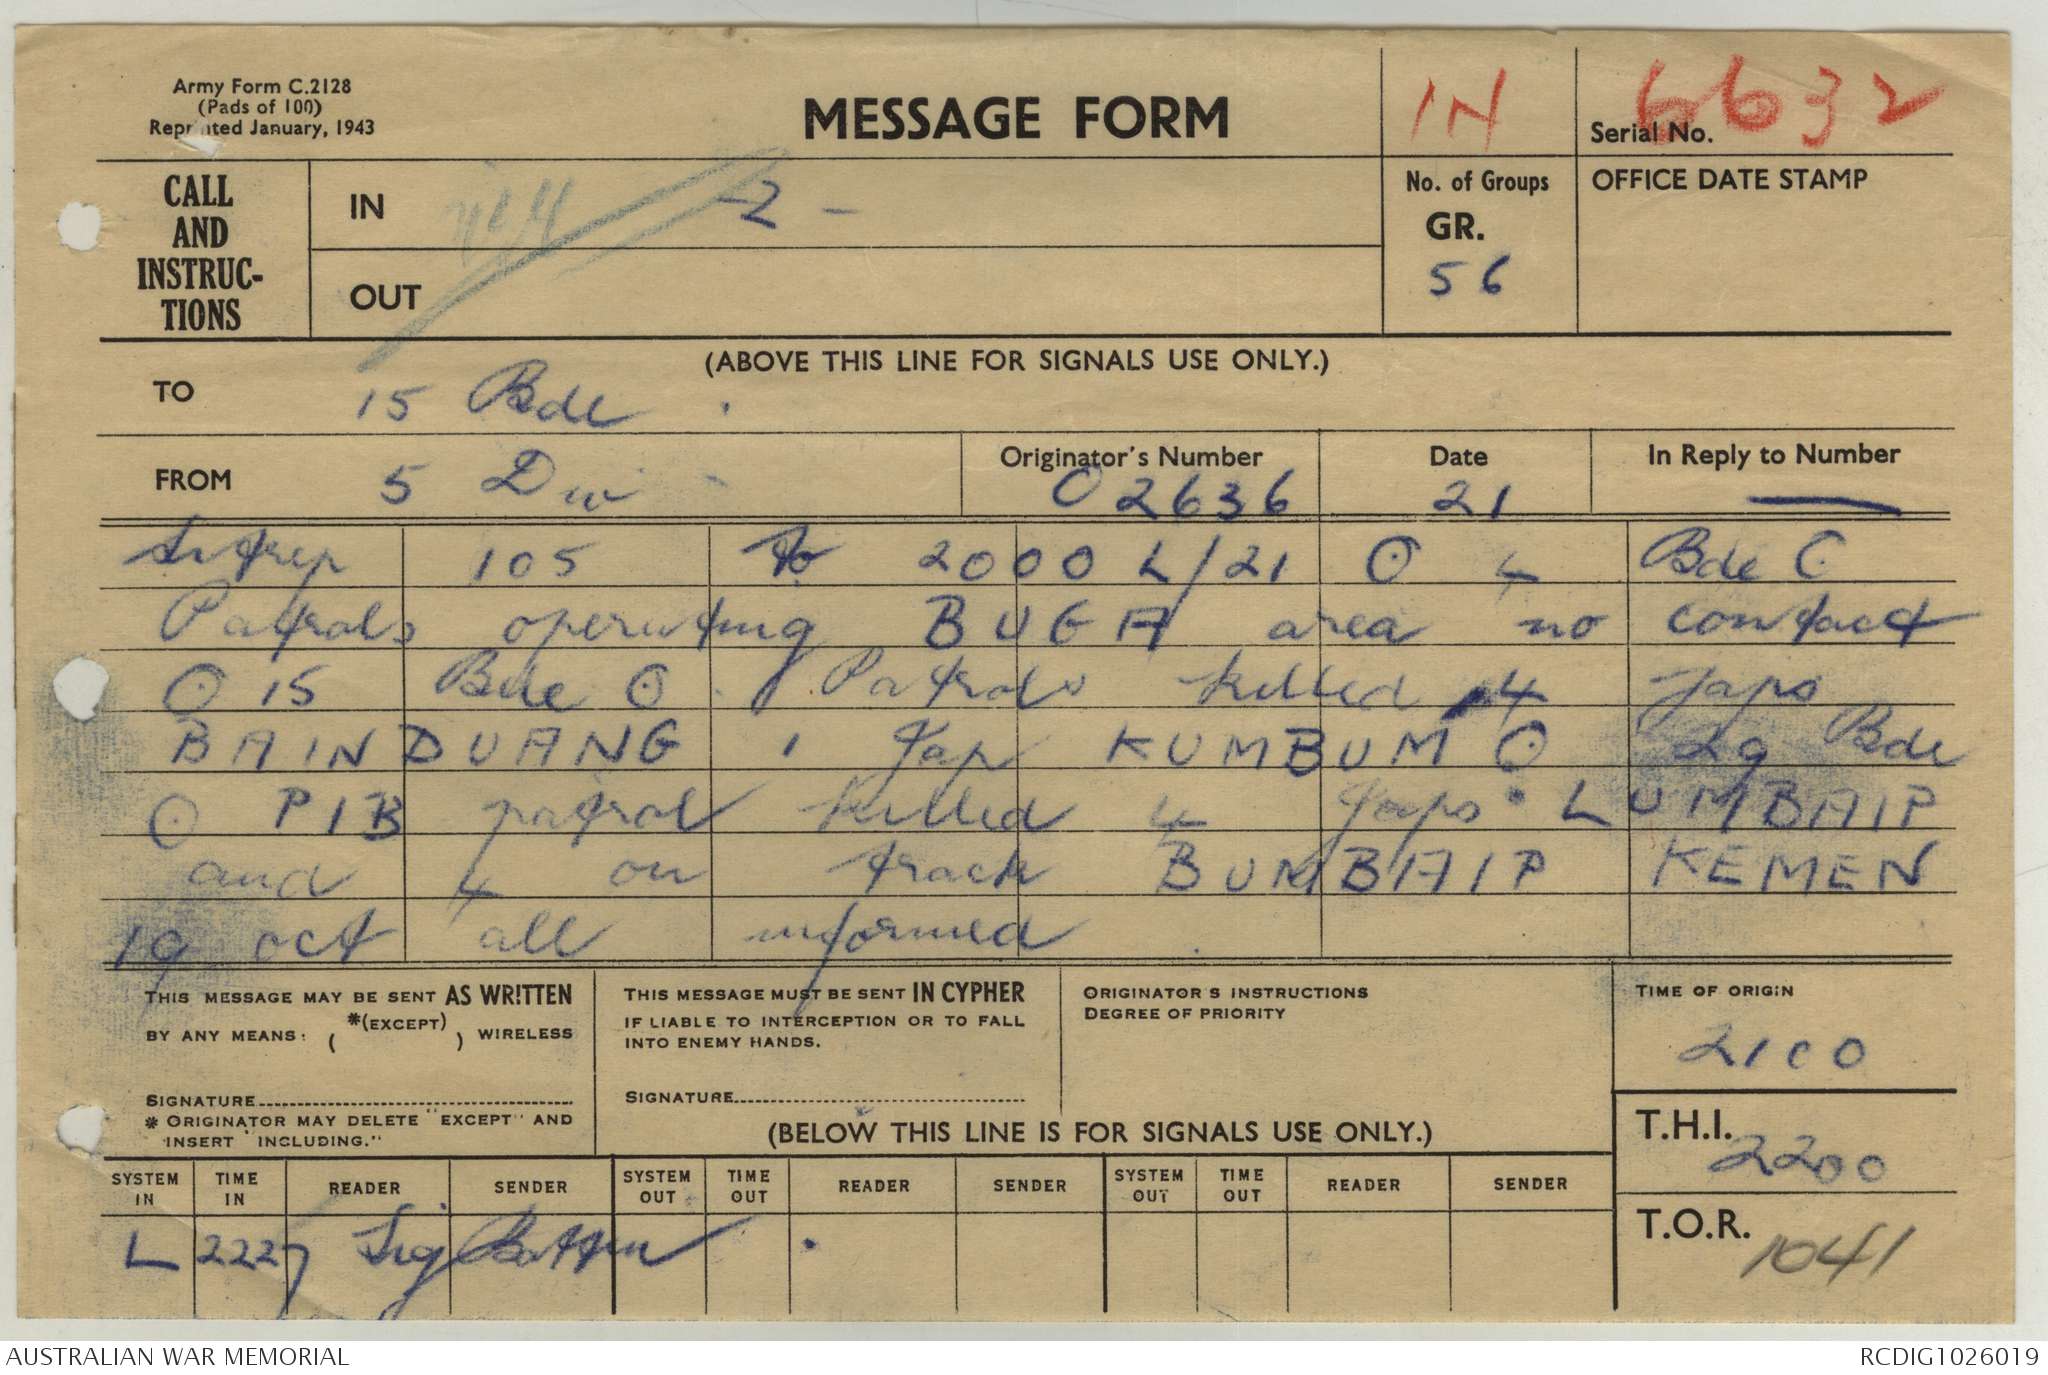 Army Form C.2128
(Pads of 100)
Reprinted January, 1943
MESSAGE FORM
IN
Serial No. 6632
CALL
AND
INSTRUC-
TIONS
IN
-2-
OUT
No. of Groups
GR.
56
OFFICE DATE STAMP
(ABOVE THIS LINE FOR SIGNALS USE ONLY.)
TO 15 Bde
FROM 5 Div
Originator's Number
02636
Date
21
In Reply to Number
—
Sitrep 105 to 2000 L/21 O 4 Bde O
Patrols operating BUGA area no contact
O 15 Bde O Patrols killed 4 Japs
BAINDUANG 1 Jap KUMBUM O 29 Bde
O PIB patrol killed 4 Japs LUMBAIP
and 4 on track BUMBAIP KEMEN
19 Oct all informed
THIS MESSAGE MAY BE SENT AS WRITTEN
BY ANY MEANS: ( *(EXCEPT) ) WIRELESS
SIGNATURE
* ORIGINATOR MAY DELETE "EXCEPT" AND
INSERT "INCLUDING."
THIS MESSAGE MUST BE SENT IN CYPHER
IF LIABLE TO INTERCEPTION OR TO FALL
INTO ENEMY HANDS.
SIGNATURE
ORIGINATOR'S INSTRUCTIONS
DEGREE OF PRIORITY
TIME OF ORIGIN
2100
(BELOW THIS LINE IS FOR SIGNALS USE ONLY.)
T.H.I.
2200
SYSTEM IN TIME IN READER SENDER SYSTEM OUT TIME OUT READER SENDER SYSTEM OUT TIME OUT READER SENDER
L 2227 Sig
T.O.R.
1041
AUSTRALIAN WAR MEMORIAL
RCDIG1026019